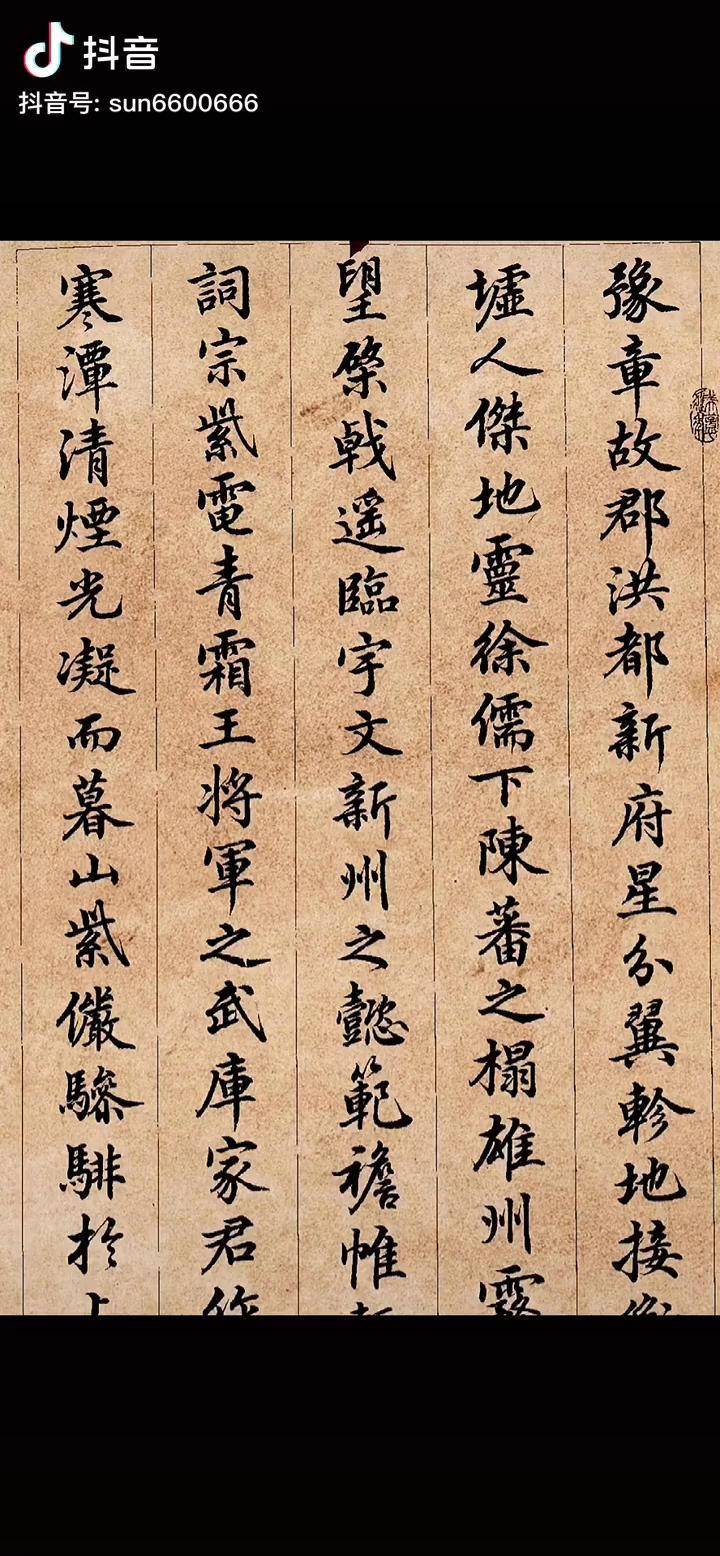 抖音
抖音号: sun6600666
豫章故郡洪都新府星分翼軫地接
墟人傑地靈徐儒下陳蕃之榻雄州霧
望棨戟遥臨宇文新州之懿範襜帷
詞宗紫電青霜王將軍之武庫家君作
寒潭清煙光凝而暮山紫儼驂騑於上